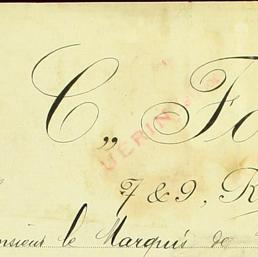 C„ Fo
UERIN
7 & 9, R
nsieur le Marquis de